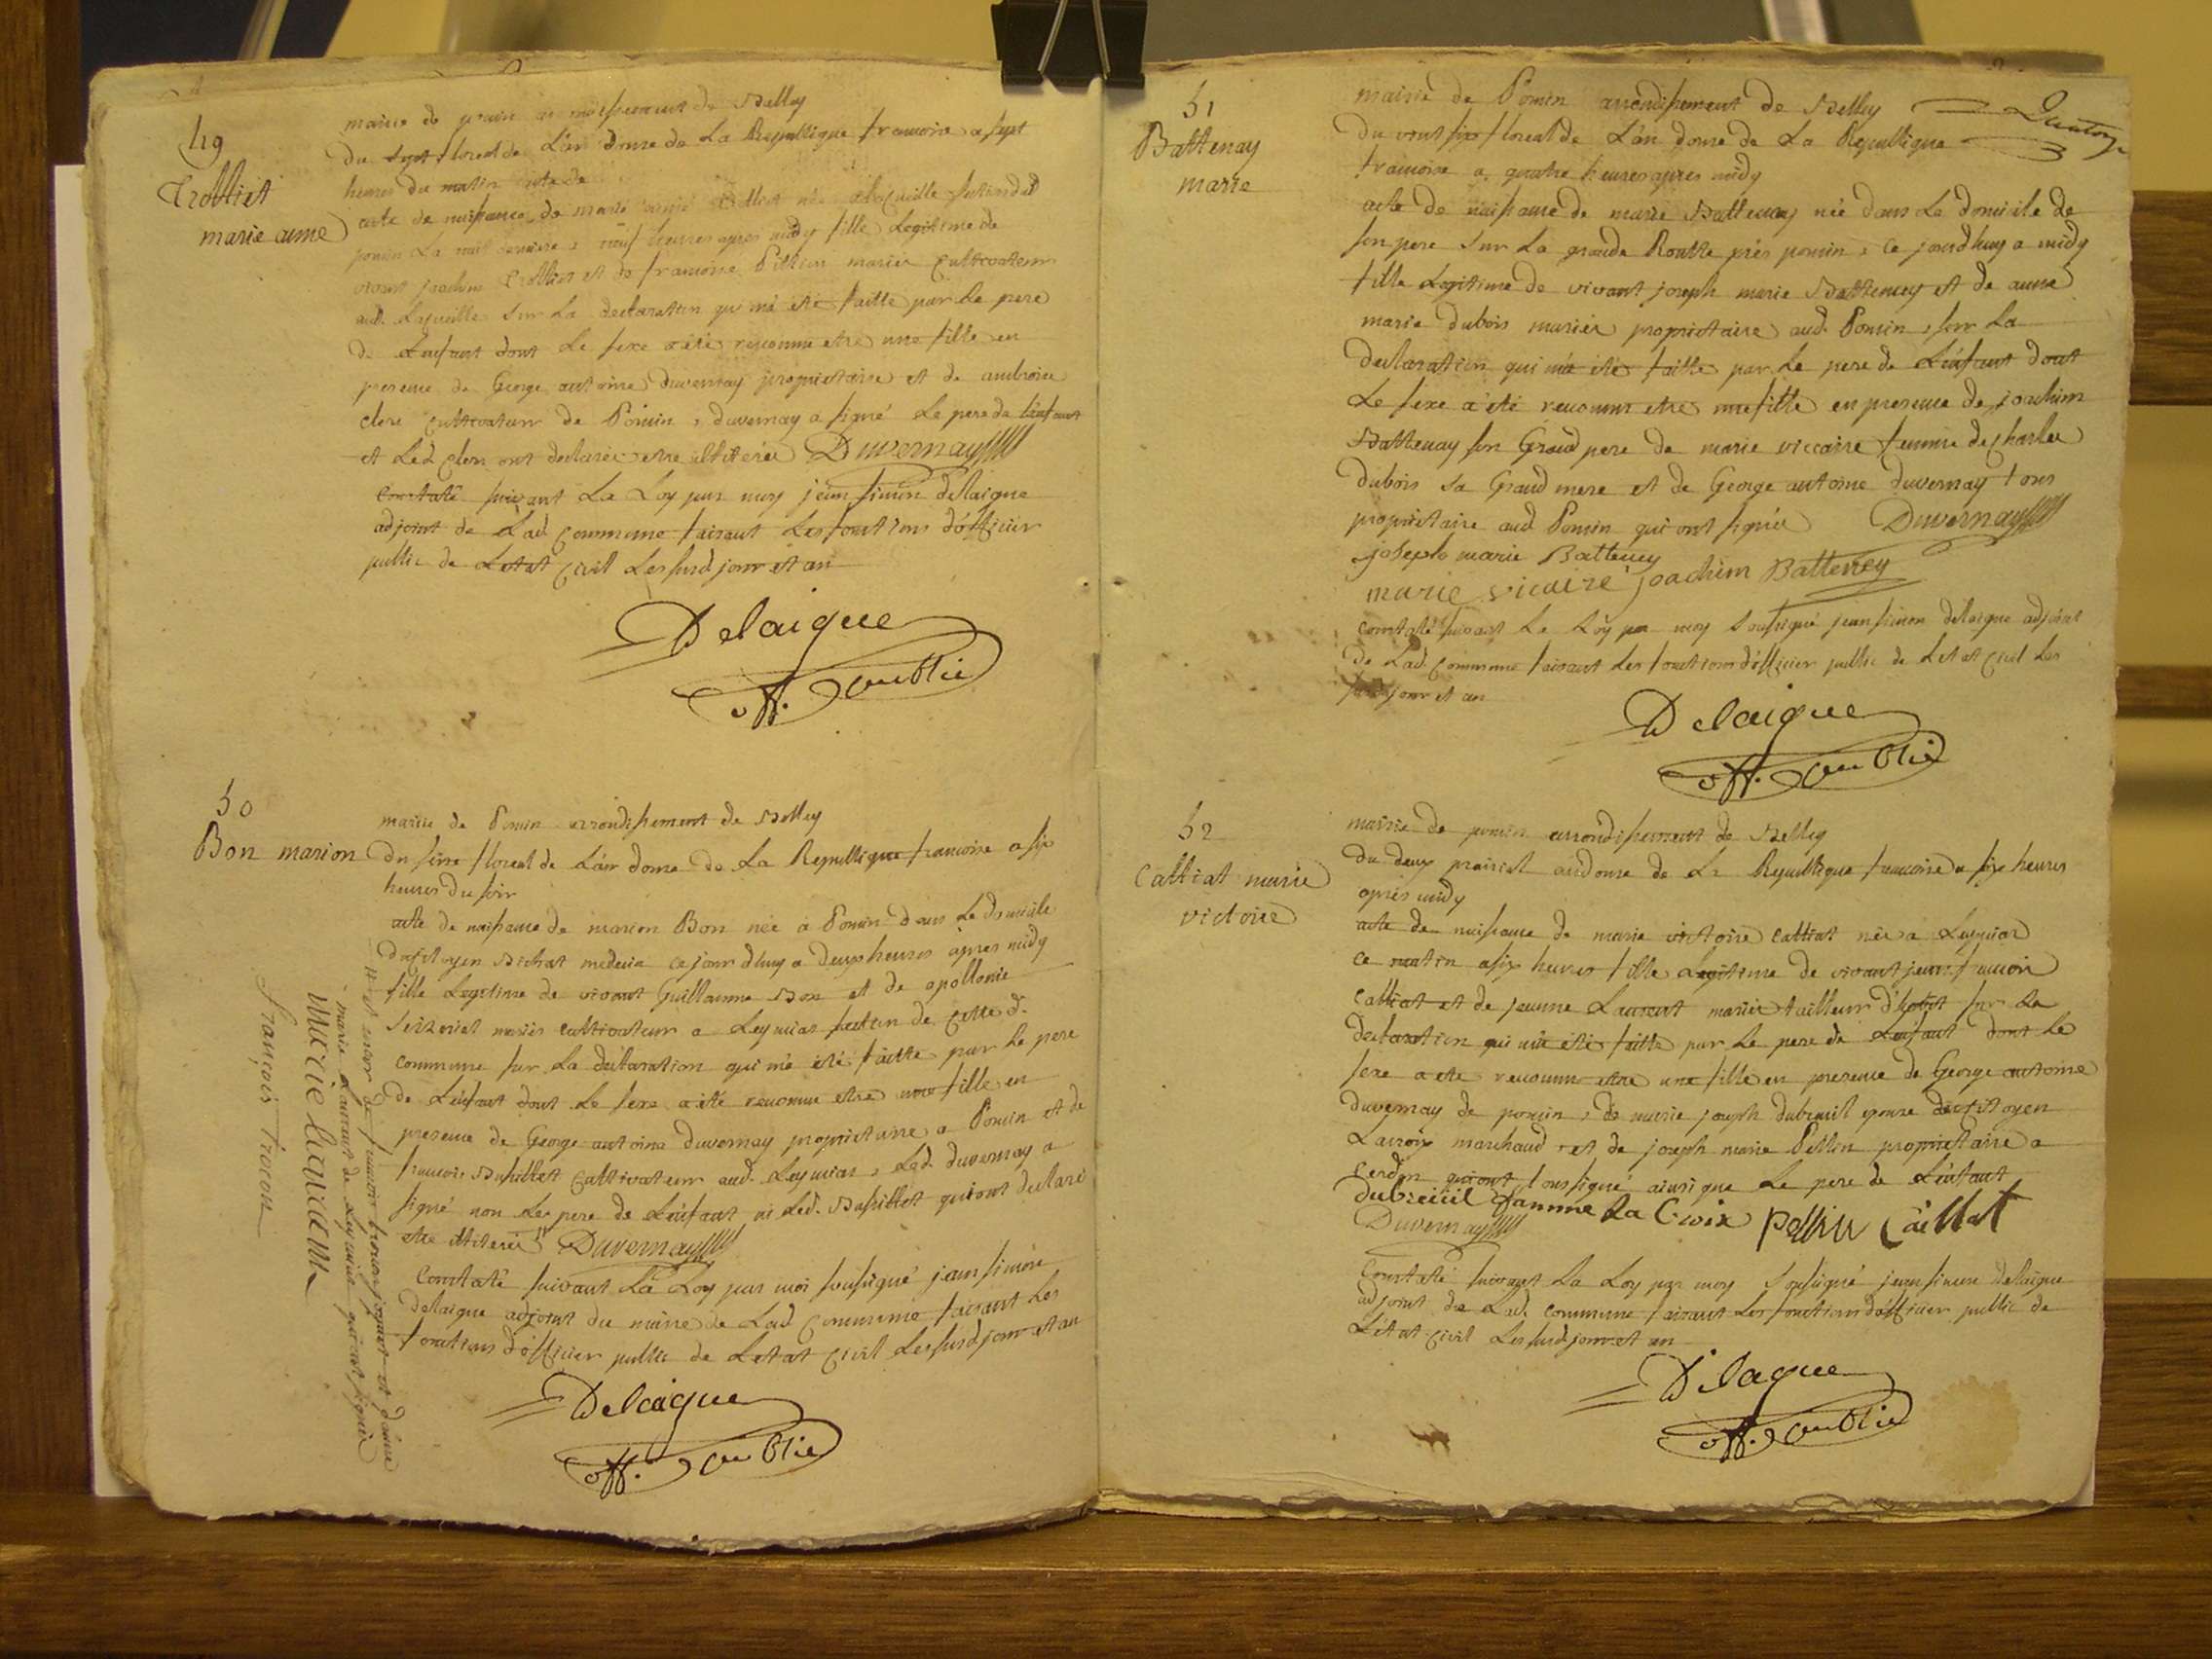 49
Trolliet
marie anne
mairie de poncin arrondissement de Belley
Du sept floreal de L'an douze de La Republique francoise a sept
heures du matin acte de
acte de naissance de marie anne Trolliet née a Laqueille hameau de
poncin La nuit derniere a neuf heures apres midy fille Legitime de
vivant joachim Trolliet et de francoise Pittion mariés Cultivateurs
aud. Laqueille sur La declaration qui m'a été faitte par le pere
de L'enfant dont Le sexe a été reconnu etre une fille en
presence de George antoine duvernay proprietaire et de ambroise
clerc Cultivateur de Poncin, duvernay a signé Le pere de l'enfant
et Led. Clerc ont declarés etre illiterés Duvernay
Constaté suivant La Loy par moy jean simon delaigue
adjoint de Lad. Commune faisant Les fonctions d'officier
public de Letat Civil Les susd. jour et an
Delaigue
off. public
50
Bon marion
mairie de Poncin arrondissement de Belley
Du seize floreal de L'an douze de La Republique francoise a six
heures du soir
acte de naissance de marion Bon née a Poncin dans Le domicile
du Citoyen Bichat medecin ce jourd'huy a deux heures apres midy
fille Legitime de vivant Guillaume Bon et de apollonie
mariés cultivateur a Leymiat section de Cette d.
commune sur La declaration qui m'a été faitte par Le pere
de L'enfant dont Le sexe a été reconnu etre une fille en
presence de George antoine duvernay proprietaire a Poncin et de
francois Bussillet Cultivateur aud. Leymiat, Led. duvernay a
signé non Le pere de L'enfant ni Led. Bussillet qui ont declaré
etre illiterés Duvernay
Constaté suivant La Loy par moi soussigné jean simon
delaigue adjoint du maire de Lad. Commune faisant Les
fonctions d'officier public de Letat Civil Les susd. jour et an
Delaigue
off. public
et encor de francois trocon et dame
marie Laurent de Leymiat qui ont signés
marie laurant
François trocon
51
Battenay
marie
mairie de Poncin arrondissement de Belley
Du vint six floreal de L'an douze de La Republique
francoise a quatre heures apres midy
acte de naissance de marie Battenay née dans Le domicile de
son pere sur La grande Routte près poncin, ce jourdhuy a midy
fille Legitime de vivant joseph marie Battenay et de anne
marie dubois mariés proprietaire aud. Poncin, sur La
declaration qui m'a été faitte par Le pere de L'enfant dont
Le sexe a été reconnu etre une fille en presence de joachim
Battenay son Grand pere de marie viccaire femme de charles
dubois sa Grand mere et de George antoine duvernay tous
proprietaire aud. Poncin qui ont signés Duvernay
joseph marie Batteney
marie vicaire joachim Batteney
Constaté suivant La Loy par moy soussigné jean simon delaigue adjoint
de Lad. Commune faisant Les fonctions d'officier public de Letat Civil Les
susd. jour et an
Delaigue
off. public
52
Calliat marie
victoire
mairie de poncin arrondissement de Belley
Du deux prairial an douze de La Republique francoise a six heures
après midy
acte de naissance de marie victoire Calliat née a Leymiat
ce matin a six heures fille Legitime de vivant jean francois
Calliat et de jeanne Laurent mariés tailleur d'habit sur La
declaration qui m'a été faitte par Le pere de L'enfant dont Le
sexe a été reconnu etre une fille en presence de George antoine
duvernay de poncin, de marie joseph dubreuil epouse du Citoyen
Lacroix marchand et de joseph marie Pittion proprietaire a
Cerdon qui ont tous signé ainsi que Le pere de L'enfant
dubreüil famme La Croix Caillat
Duvernay
Constaté suivant La Loy par moy soussigné jean simon delaigue
adjoint de Lad. Commune faisant Les fonctions d'officier public de
L'etat Civil Les susd. jour et an
Delaigue
off. public